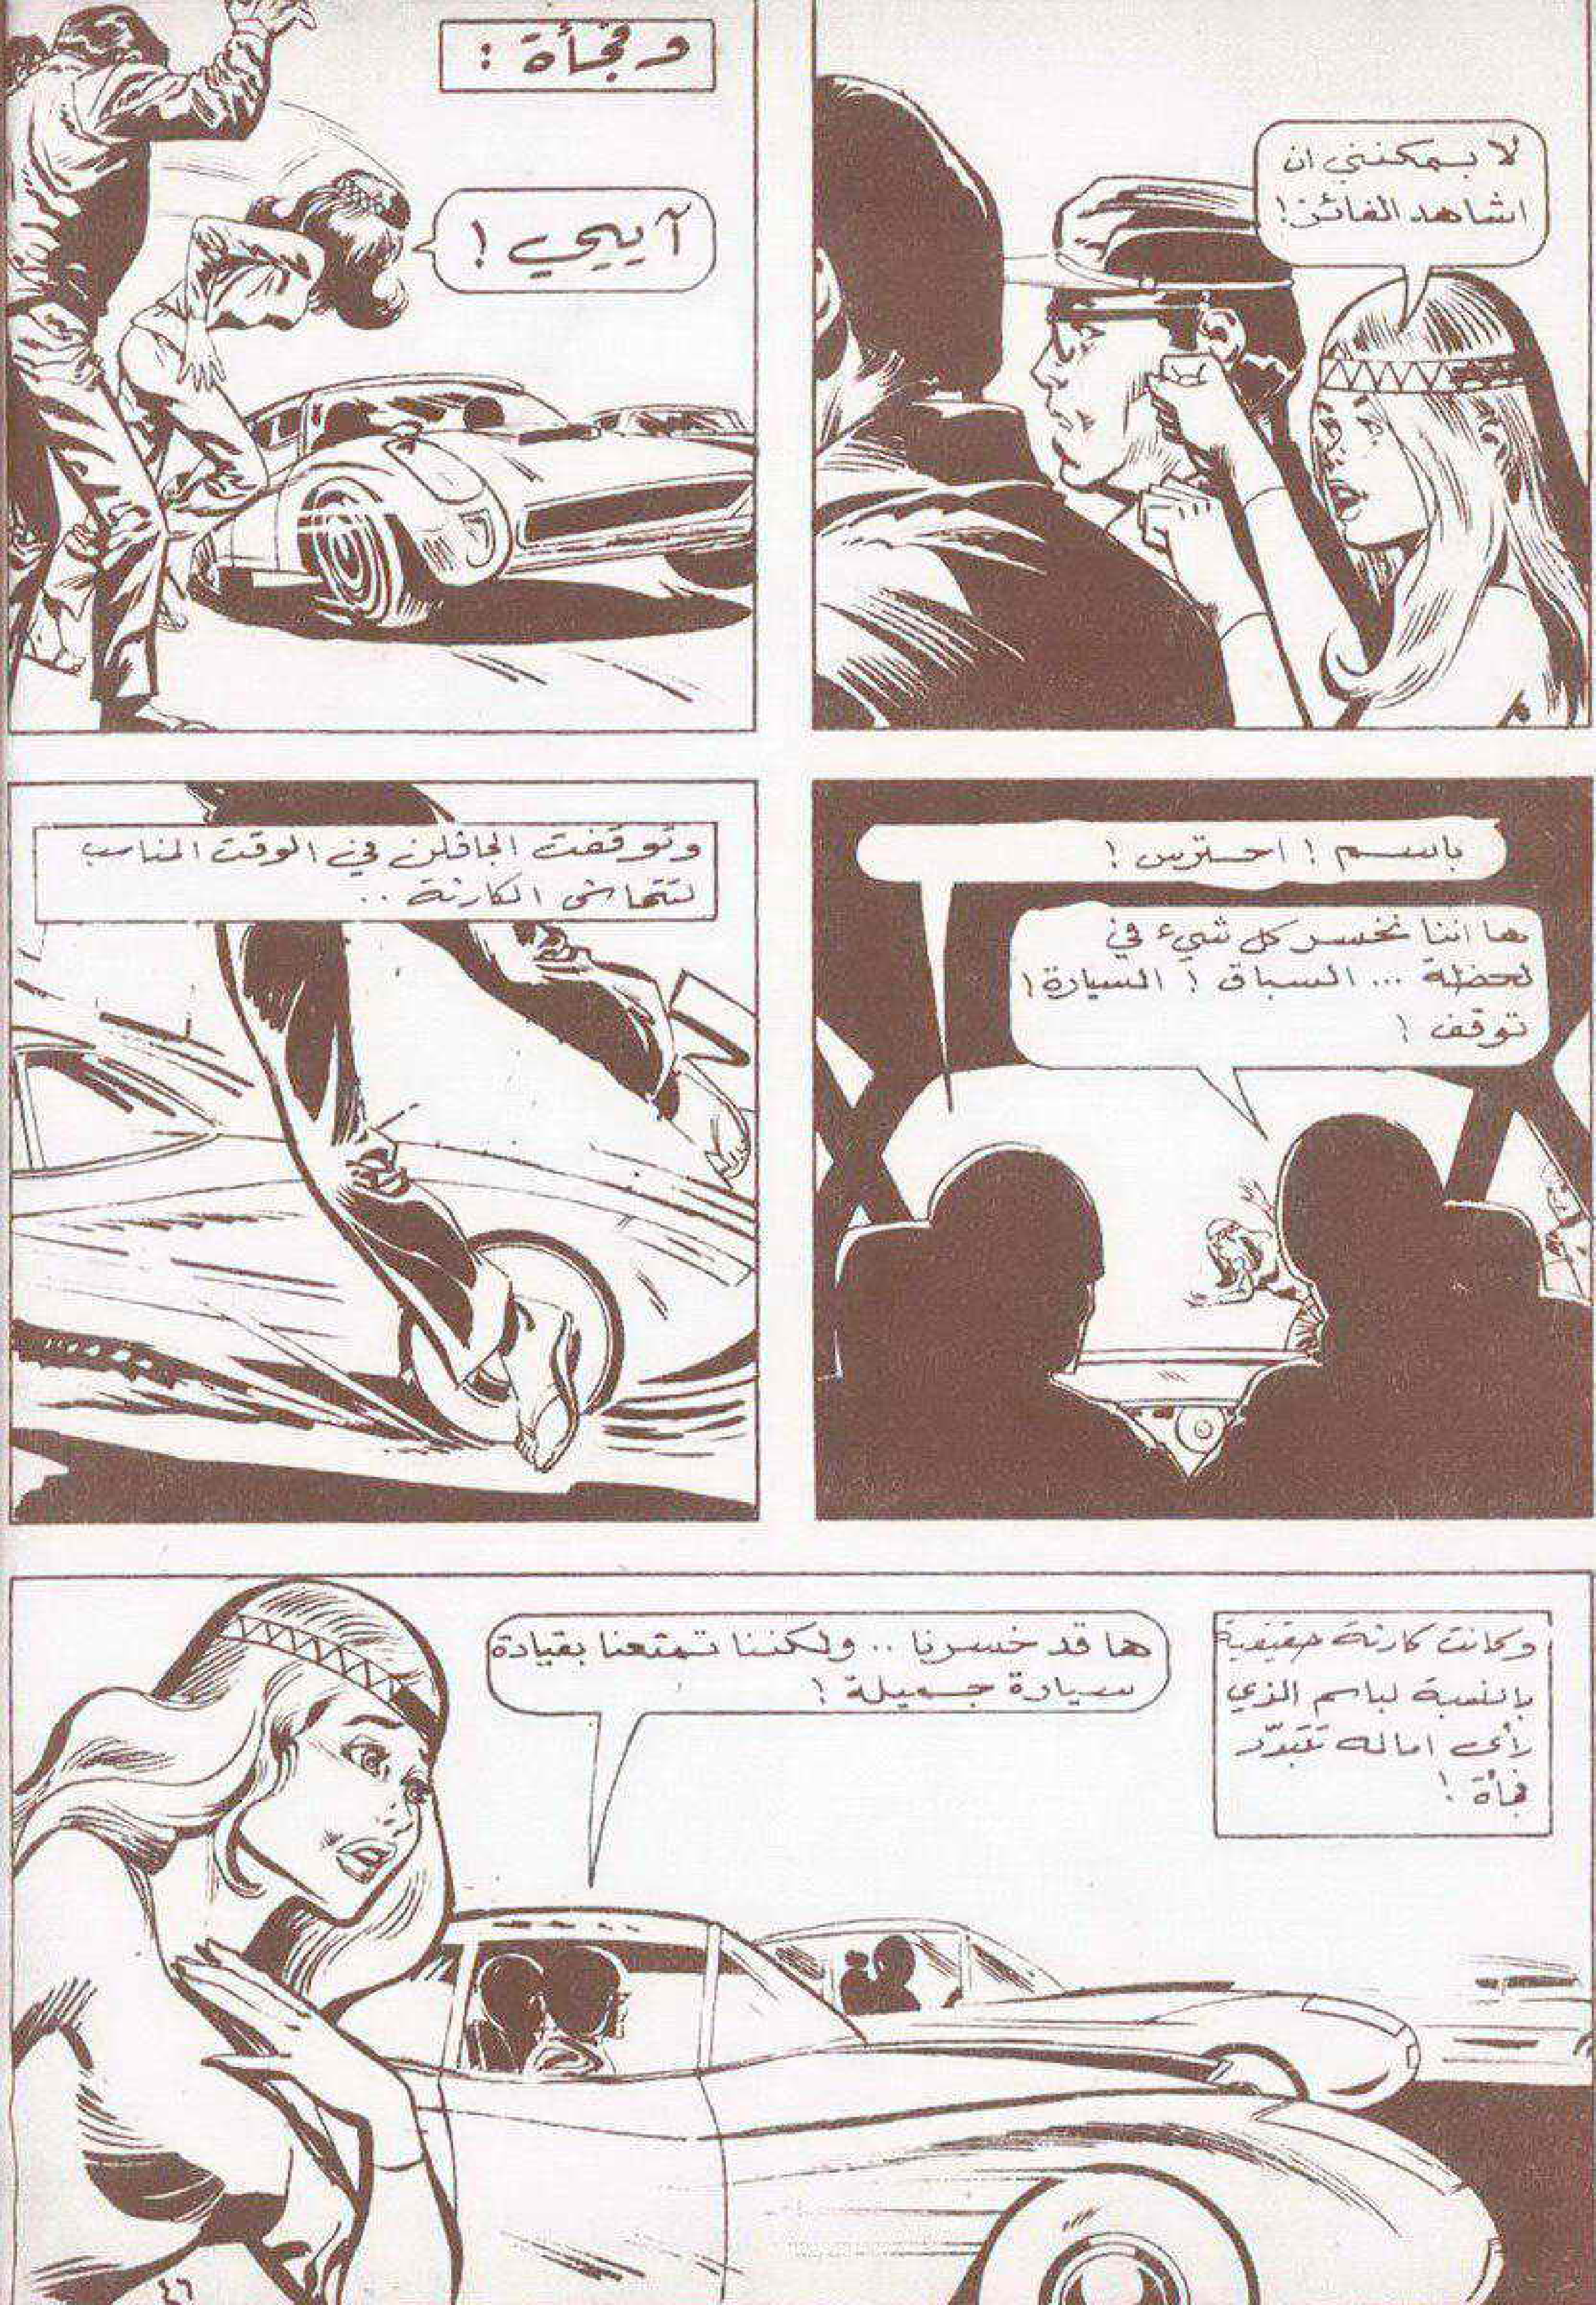 لا يمكنني ان
اشاهد الفائز!
وفجأة :
آيييي !
باسم ! احترس !
ها اننا نخسر كل شيء في
لحظة ... السباق ! السيارة !
توقف !
وتوقفت الجاغلن في الوقت المناسب
لتتحاشى الكارثة ..
وكانت كارثة حقيقية
بالنسبة لباسم الذي
رأى اماله تتبدّد
فجأة !
ها قد خسرنا .. ولكننا تمتعنا بقيادة
سيارة جميلة !
٤٦